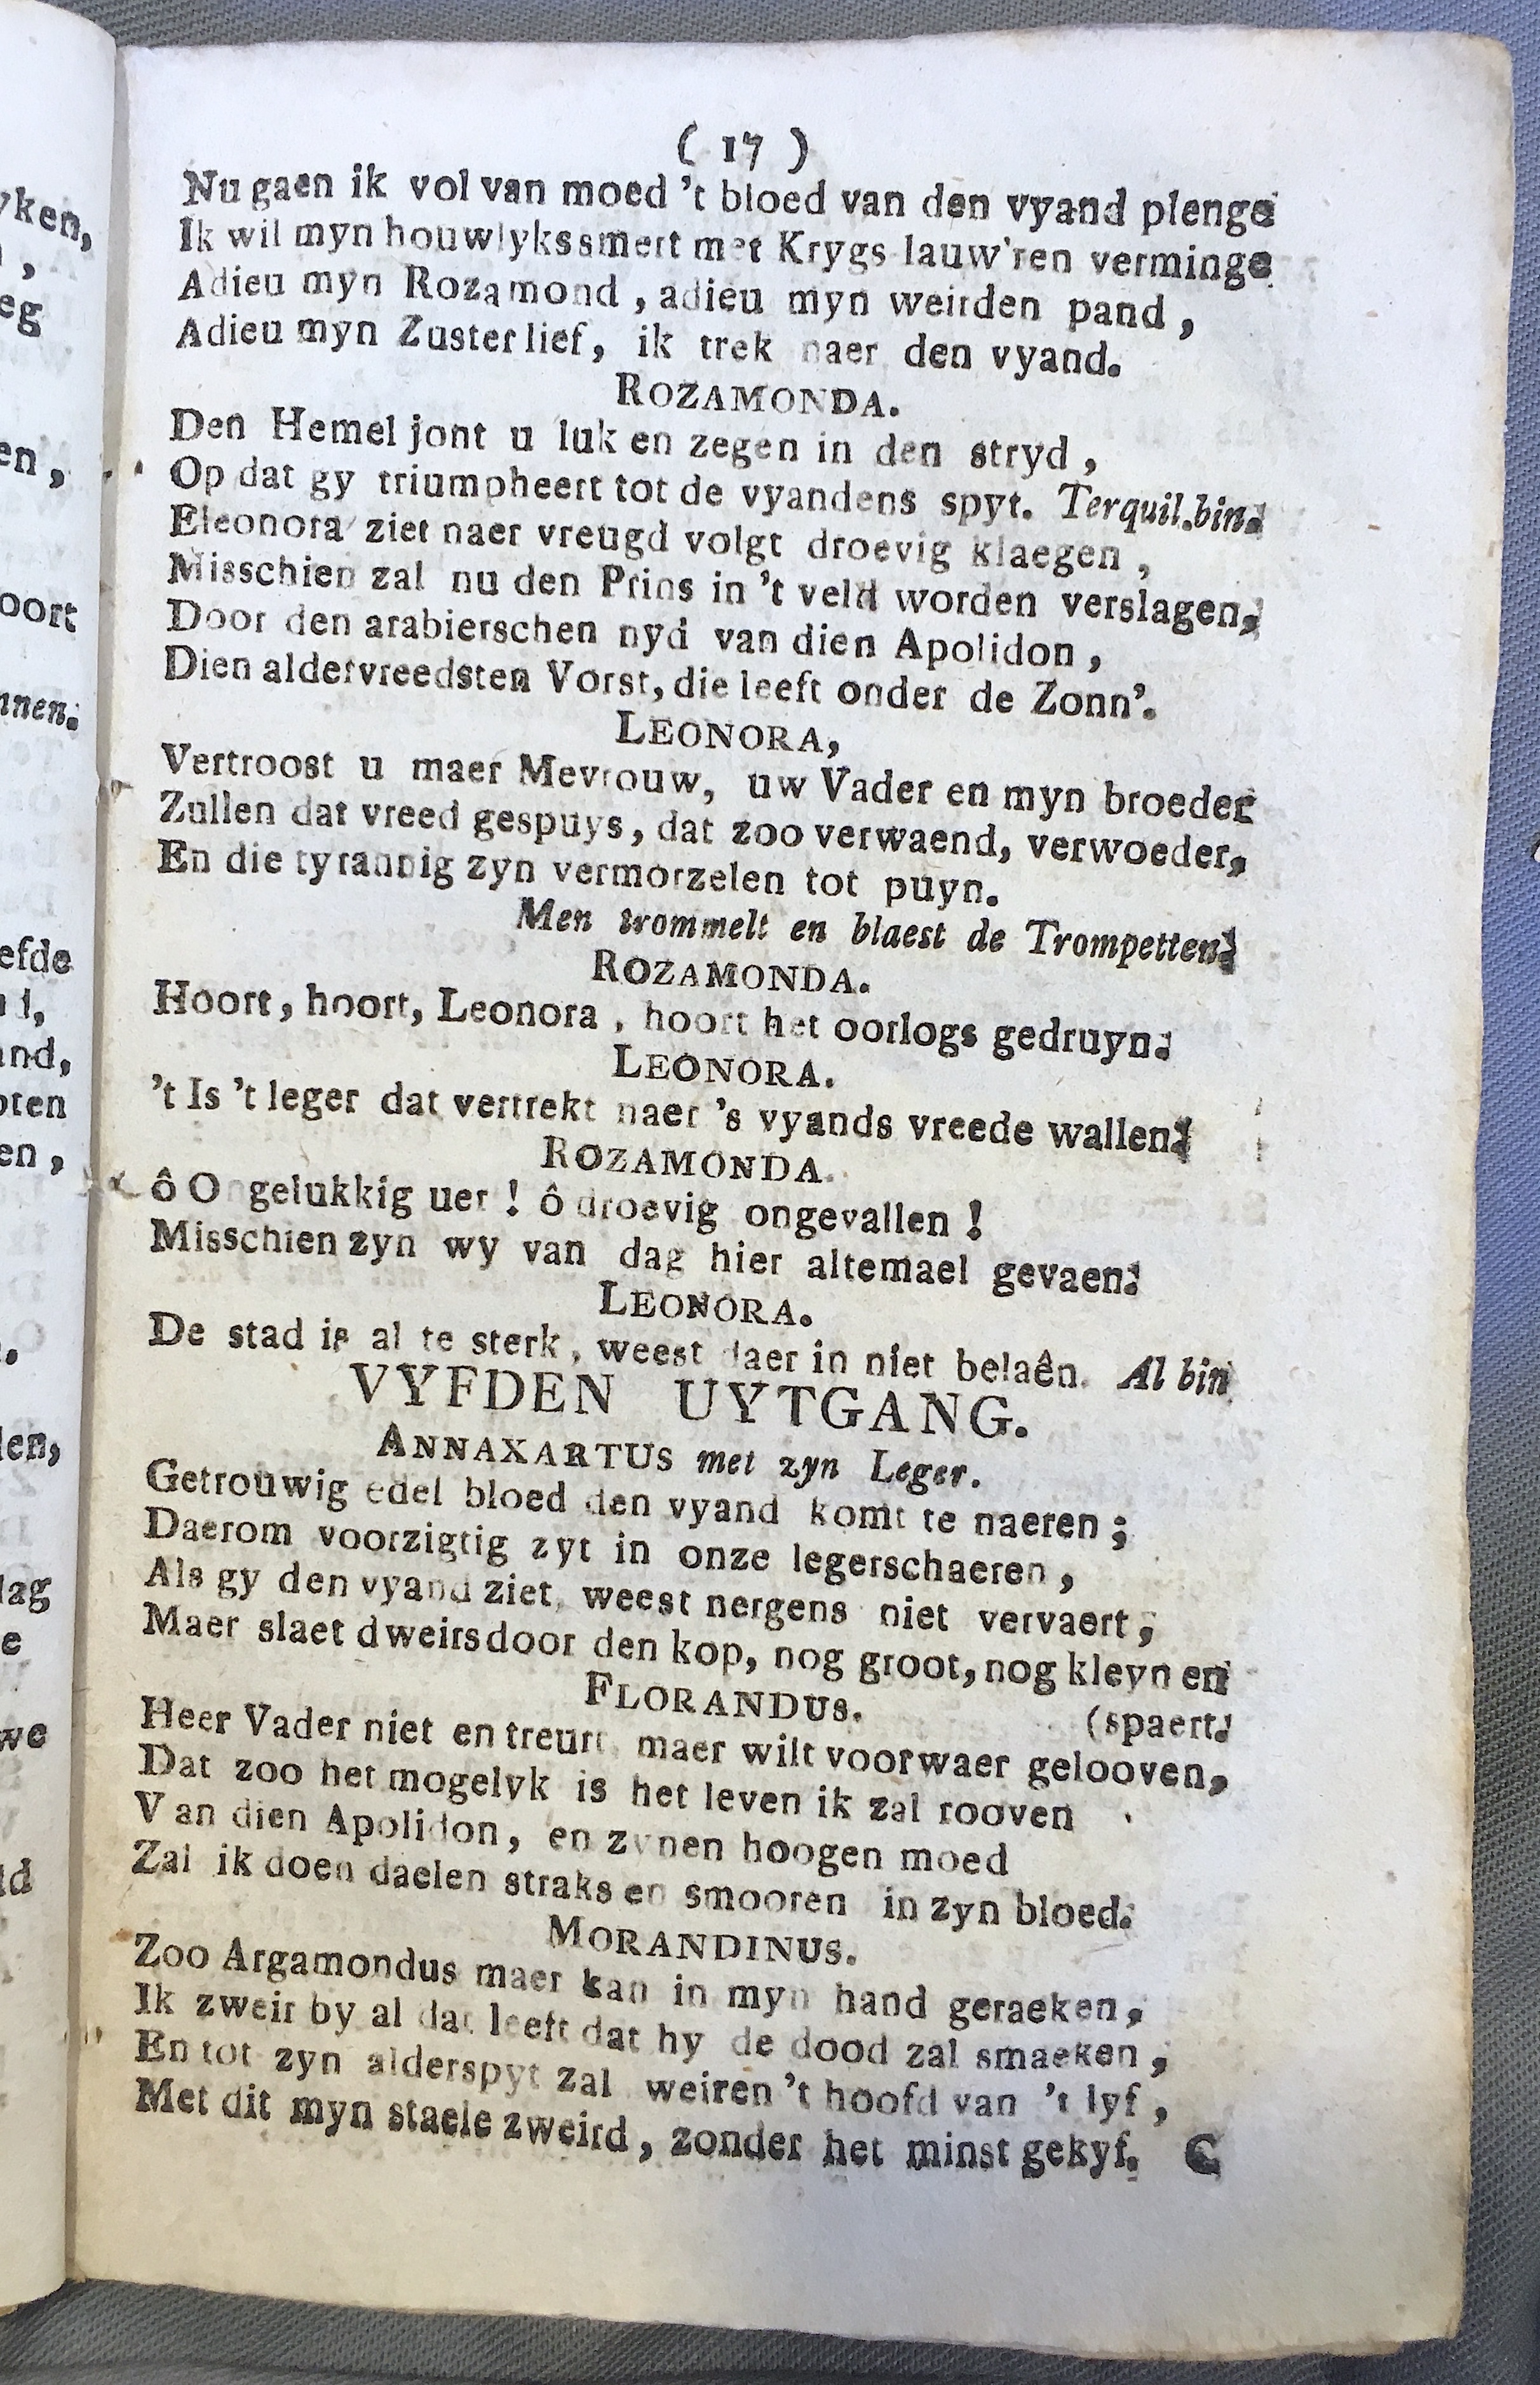 ( 17 )
Nu gaen ik vol van moed 't bloed van den vyand plenge
Ik wil myn houwlykssmert met Krygs lauw'ren verminge
Adieu myn Rozamond, adieu myn weirden pand,
Adieu myn Zuster lief, ik trek naer den vyand.
ROZAMONDA.
Den Hemel jont u luk en zegen in den stryd,
Op dat gy triumpheert tot de vyandens spyt. Terquil. bin.
Eleonora ziet naer vreugd volgt droevig klaegen,
Misschien zal nu den Prins in 't veld worden verslagen,
Door den arabierschen nyd van dien Apolidon,
Dien aldervreedsten Vorst, die leeft onder de Zonn'.
LEONORA,
Vertroost u maer Mevrouw, uw Vader en myn broeder
Zullen dat vreed gespuys, dat zoo verwaend, verwoeder,
En die tyrannig zyn vermorzelen tot puyn.
Men trommelt en blaest de Trompetten.
ROZAMONDA.
Hoort, hoort, Leonora, hoort het oorlogs gedruyn.
LEONORA.
't Is 't leger dat vertrekt naer 's vyands vreede wallen.
ROZAMONDA.
ô Ongelukkig uer! ô droevig ongevallen!
Misschien zyn wy van dag hier altemael gevaen.
LEONORA.
De stad is al te sterk, weest daer in niet belaên. Al bin
VYFDEN UYTGANG.
ANNAXARTUS met zyn Leger.
Getrouwig edel bloed den vyand komt te naeren;
Daerom voorzigtig zyt in onze legerschaeren,
Als gy den vyand ziet, weest nergens niet vervaert,
Maer slaet dweirsdoor den kop, nog groot, nog kleyn en
FLORANDUS. (spaert.
Heer Vader niet en treurt, maer wilt voorwaer gelooven,
Dat zoo het mogelyk is het leven ik zal rooven
Van dien Apolidon, en zynen hoogen moed
Zal ik doen daelen straks en smooren in zyn bloed.
MORANDINUS.
Zoo Argamondus maer kan in myn hand geraeken,
Ik zweir by al dat leeft dat hy de dood zal smaeken,
En tot zyn alderspyt zal weiren 't hoofd van 't lyf,
Met dit myn staele zweird, zonder het minst gekyf. C
yken,
eg
en,
oort
nnen.
efde
and,
oten
en,
len,
lag
e
we
ld